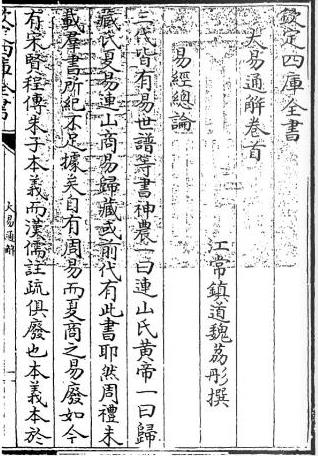 欽定四庫全書
大易通解卷首
江常鎮道魏荔彤撰
易經總論
三代皆有易世譜等書神農一曰連山氏黃帝一曰歸
藏氏夏易連山商易歸藏或前代有此書耶然周禮未
載羣書所紀不足據矣自有周易而夏商之易廢如今
有宋賢程傳朱子本義而漢儒註疏俱廢也本義本於
欽定四庫全書
大易通解